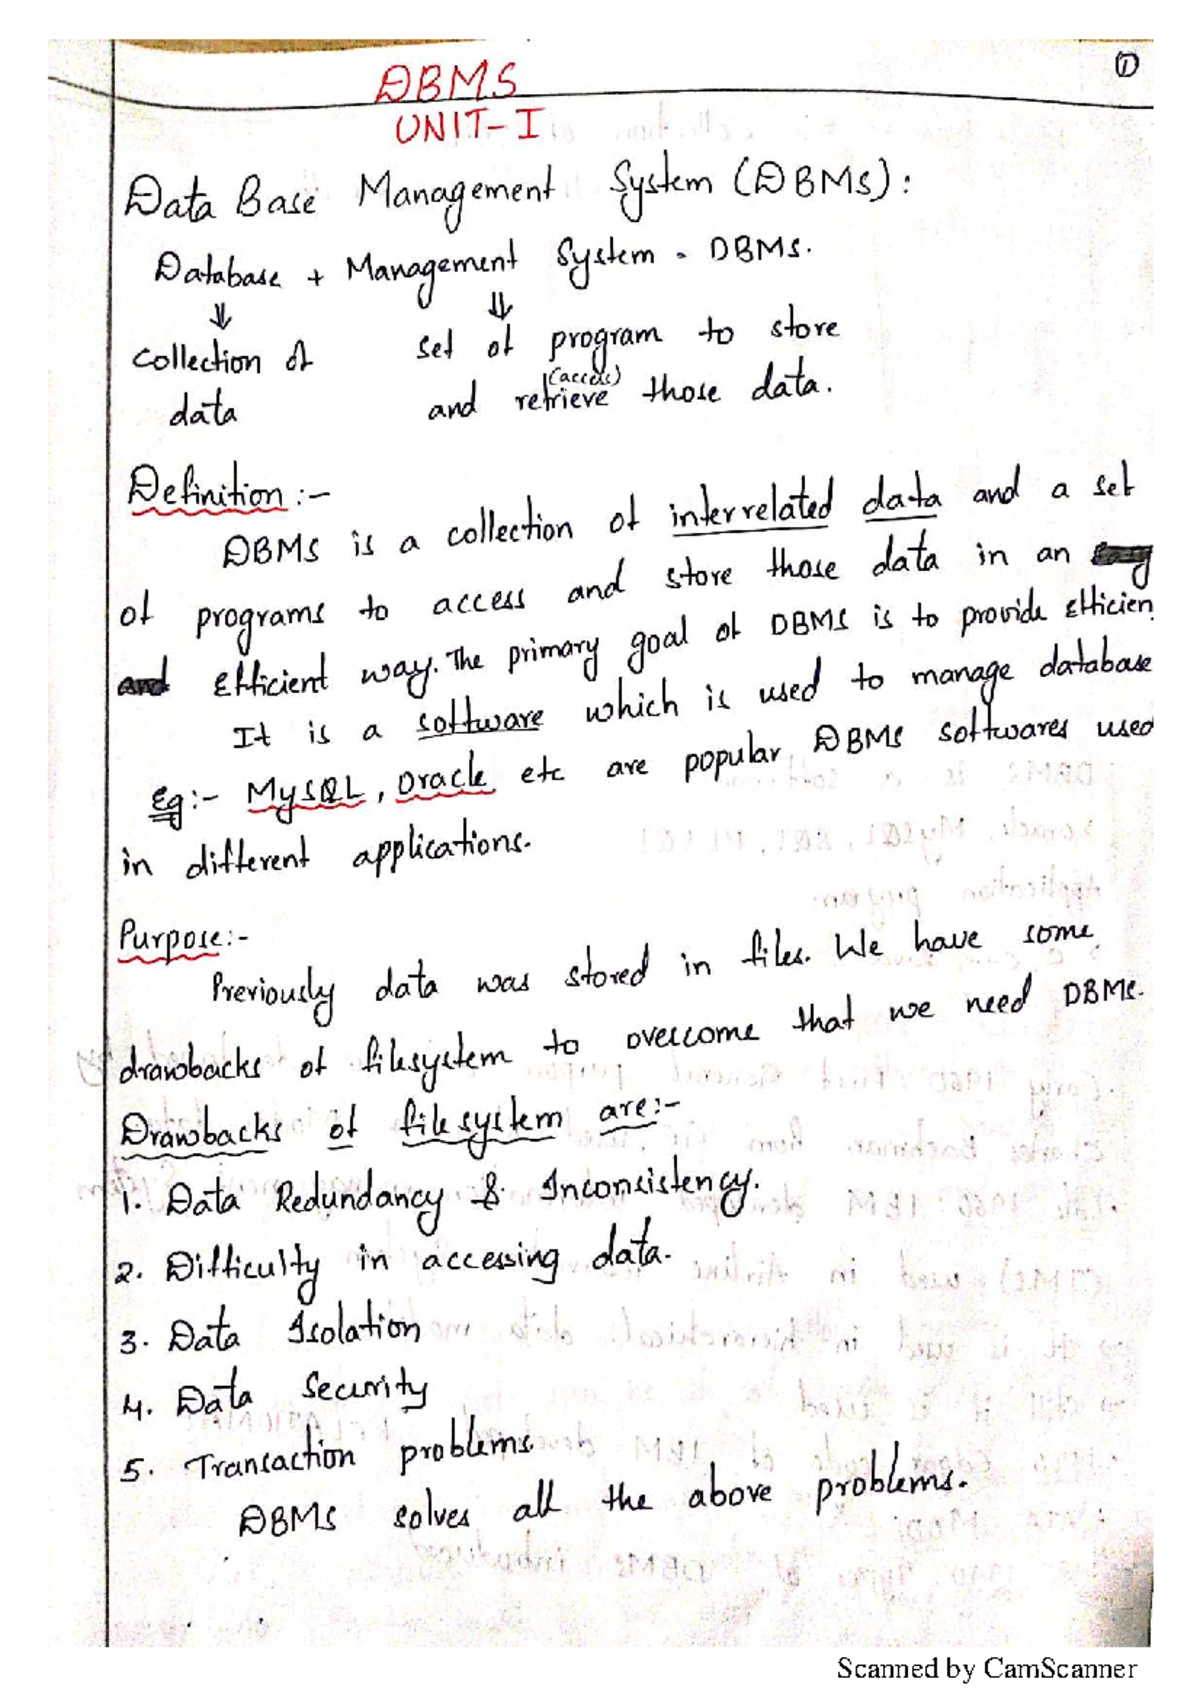 ①
DBMS
UNIT-I
Data Base Management System (DBMS):
Database + Management System = DBMS.
⇓ ⇓
Collection of set of program to store
(access)
data and retrieve those data.
Definition :-
DBMS is a collection of interrelated data and a set
of programs to access and store those data in an
efficient way. The primary goal of DBMS is to provide efficien
It is a software which is used to manage database
Eg:- MySQL, Oracle etc are popular DBMS softwares used
in different applications.
Purpose:-
Previously data was stored in files. We have some
drawbacks of filesystem to overcome that we need DBMS.
Drawbacks of file system are:-
1. Data Redundancy & Inconsistency.
2. Difficulty in accessing data.
3. Data Isolation
4. Data Security
5. Transaction problems.
DBMS solves all the above problems.
Scanned by CamScanner